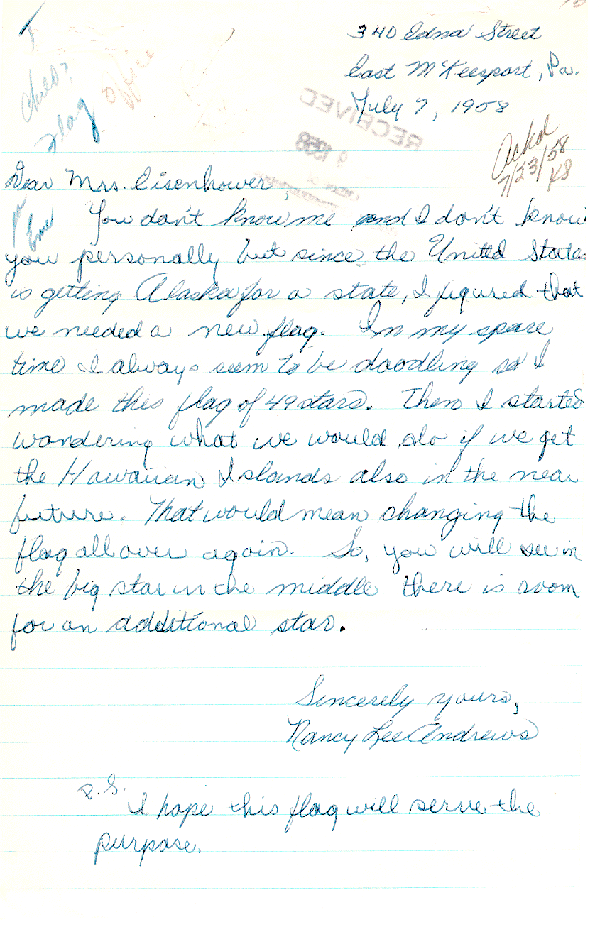 340 Edna Street
East McKeesport, Pa.
July 7, 1958
Child's
Flag
Office
RECEIVED
1958
Ackd
7/23/58
KB
Dear Mrs. Eisenhower,
You don't know me and I don't know
you personally but since the United States
is getting Alaska for a state, I figured that
we needed a new flag. In my spare
time I always seem to be doodling so I
made this flag of 49 stars. Then I started
wondering what we would do if we get
the Hawaiian Islands also in the near
future. That would mean changing the
flag all over again. So, you will see in
the big star in the middle there is room
for an additional star.
Sincerely yours,
Nancy Lee Andrews
P.S.
I hope this flag will serve the
purpose.